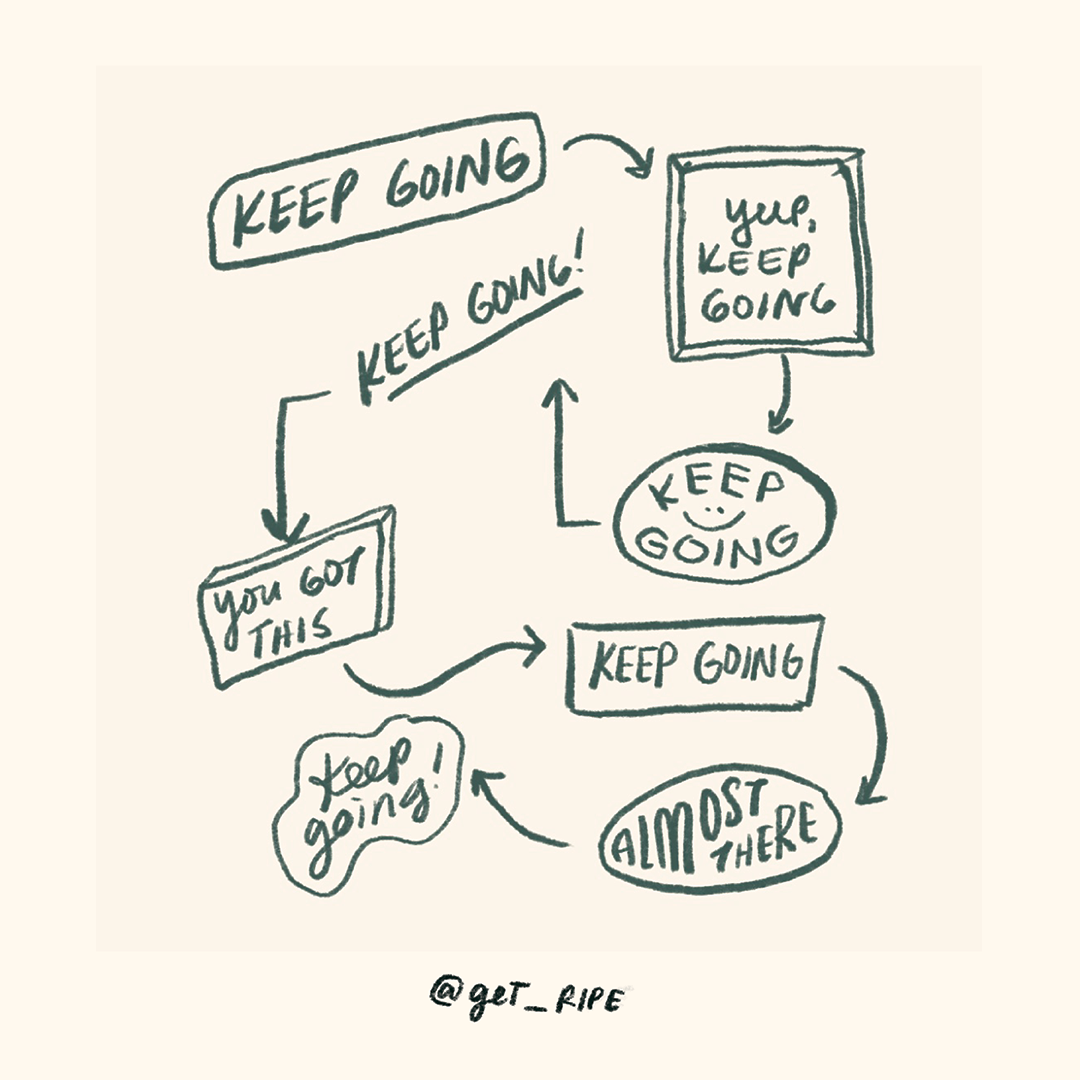 KEEP GOING
yup,
KEEP
GOING
KEEP
GOING
KEEP GOING!
you GOT
THIS
KEEP GOING
ALMOST
THERE
keep
going!
@geT_RIPE